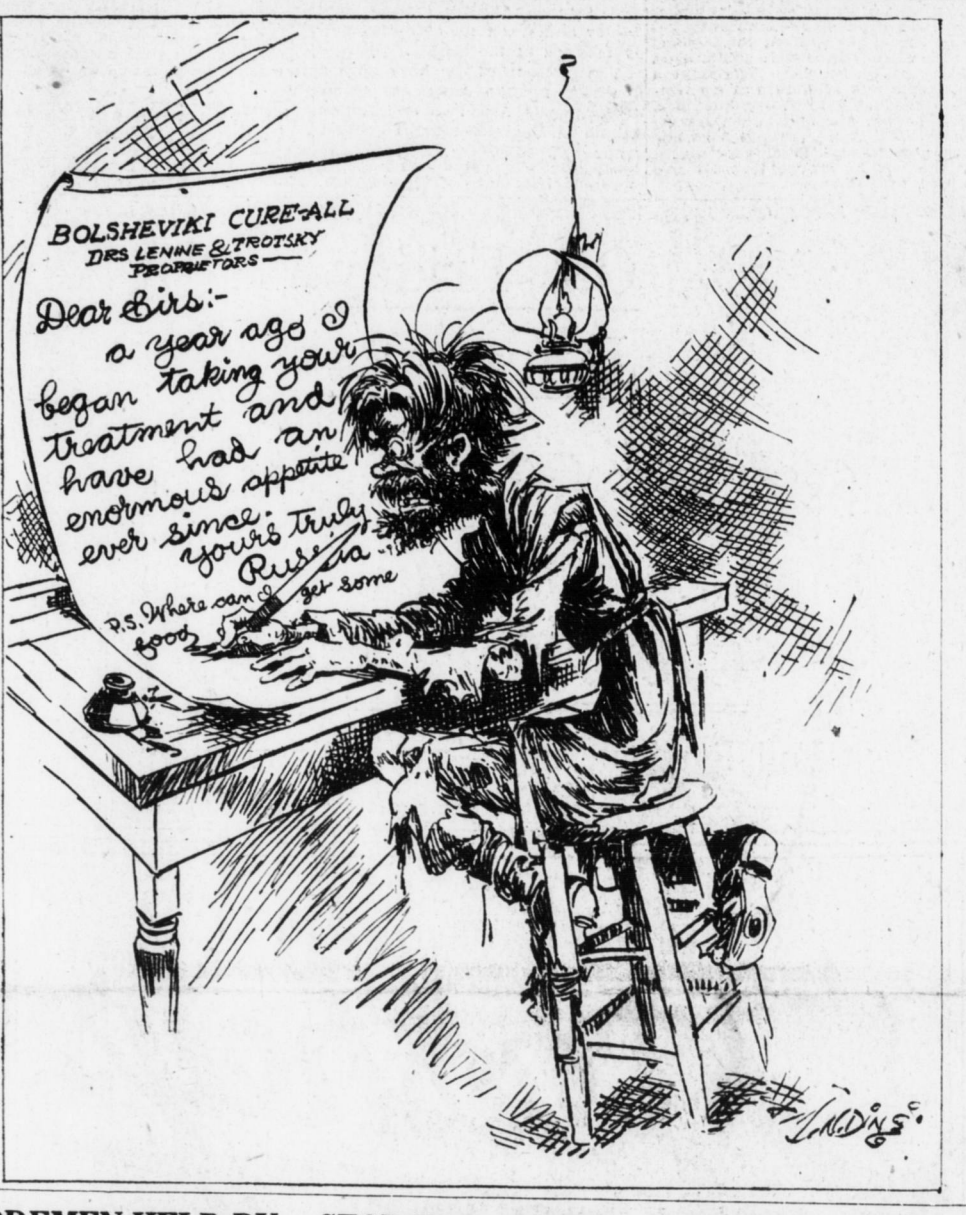 BOLSHEVIKI CURE-ALL
DRS LENINE & TROTSKY
PROPRIETORS —
Dear Sirs:-
a year ago I
began taking your
treatment and
have had an
enormous appetite
ever since.
yours truly
Russia
P.S. Where can I get some
food
J.N. DING